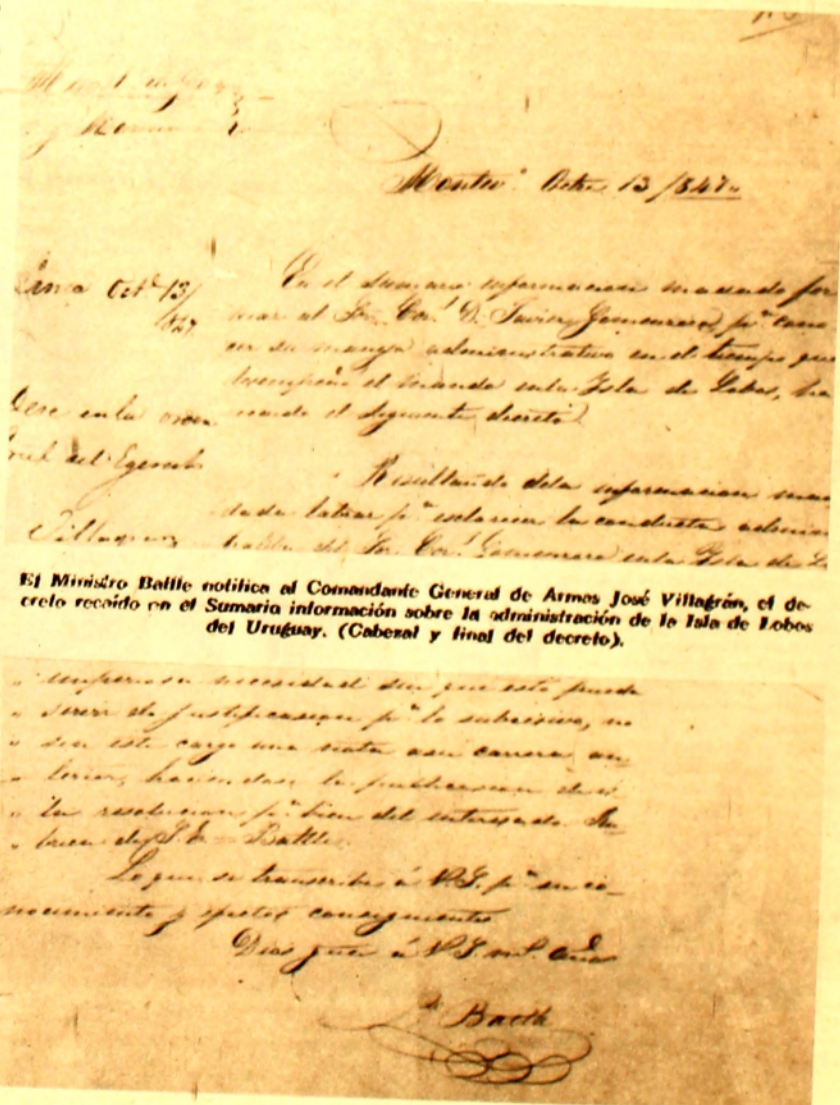 Montevº Octe 13/847„
Octe 13/
847
En el sumario informacion mandado for
mar al Sr. Corl D. Javier pª cono
cer su manejo administrativo en el tiempo que
desempeñó el mando en la Isla de Lobos, ha
recaido el siguiente decreto
en la orden
del Egercito
Villagran
Resultando dela informacion man
dada labrar pª esclarecer la conducta adminis
del Sr. Corl en la Isla de Lo
El Ministro Batlle notifica al Comandante General de Armas José Villagrán, el de-
creto recaído en el Sumario información sobre la administración de la Isla de Lobos
del Uruguay. (Cabezal y final del decreto).
„ imperiosa necesidad sin que esto pueda
„ servir de justificacion pª lo subcesivo, no
„ sea este cargo una nota asu carrera an
„ terior, haciendose la publicacion de es
„ ta resolucion pª bien del interesado. Ru
„ brica de S.E. – Batlle
Lo que se transcribe á V.S. pª su co–
nocimiento y efectos consiguientes
Dios gue á V.S. ms. años
Batlle